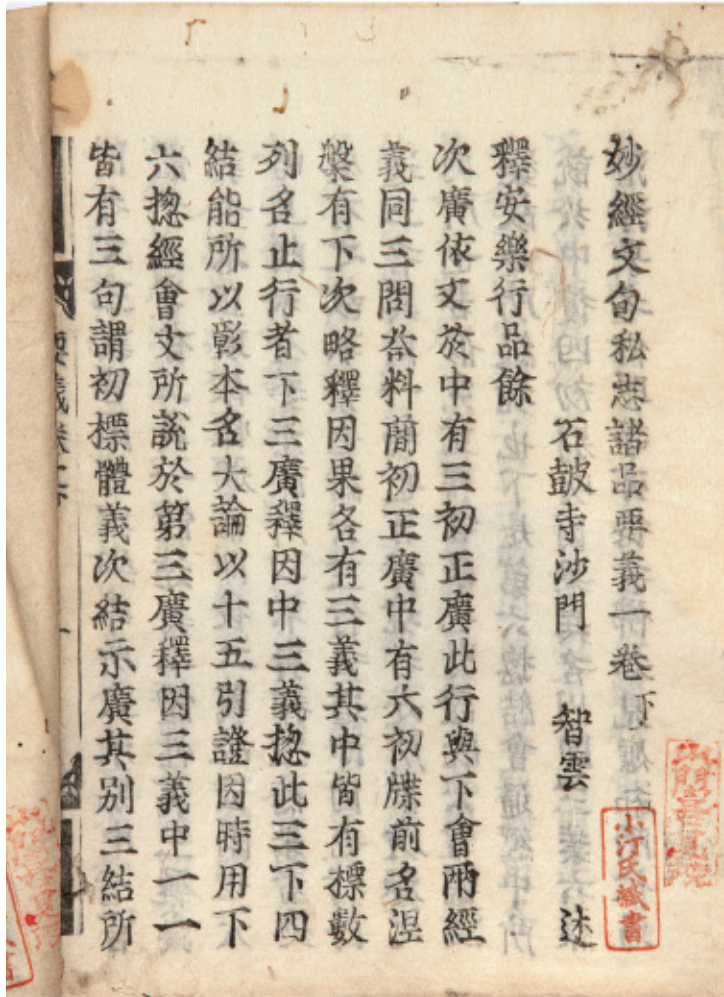 妙經文句私志諸品要義一卷下
石皷寺沙門　智雲　述
釋安樂行品餘
次廣依文於中有三初正廣此行與下會兩經
義同三問荅料蕳初正廣中有六初牒前名涅
槃有下次略釋因果各有三義其中皆有標數
列名止行者下三廣釋因中三義揔此三下四
結能所以彰本名大論以十五引證因時用下
六揔經會文所說於第三廣釋因三義中一一
皆有三句謂初標體義次結示廣其别三結所
小汀氏藏書